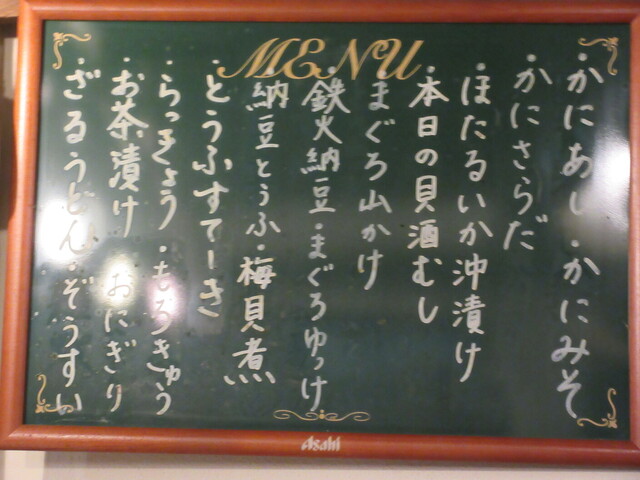 MENU
・かにあし・かにみそ
・かにさらだ
・ほたるいか沖漬け
・本日の貝酒むし
まぐろ山かけ
・鉄火納豆・まぐろゆっけ
納豆とうふ・梅貝煮
・とうふすてーき
・らっきょう・もろきゅう
・お茶漬け おにぎり
・ざるうどん・ぞうすい
Asahi